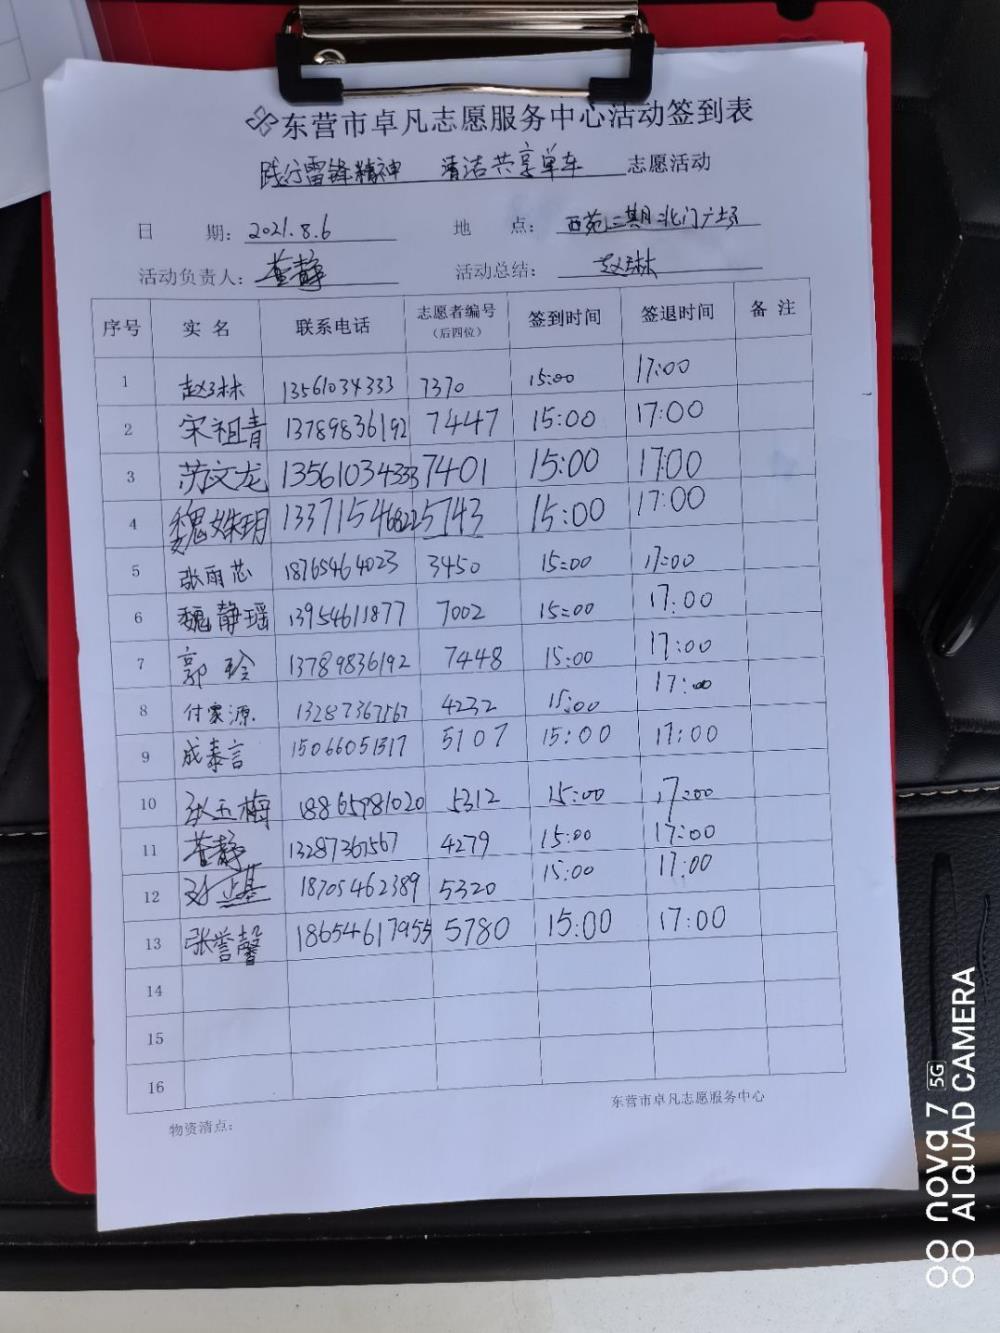 东营市卓凡志愿服务中心活动签到表
践行雷锋精神 清洁共享单车 志愿活动
日 期: 2021.8.6 地 点: 西苑三期北门广场
活动负责人: 董静 活动总结: 赵琳
序号 实 名 联系电话 志愿者编号 (后四位) 签到时间 签退时间 备 注
1 赵琳 13561034333 7370 15:00 17:00
2 宋祖青 13789836192 7447 15:00 17:00
3 苏文龙 13561034333 7401 15:00 17:00
4 魏姝玥 13371546822 5743 15:00 17:00
5 张雨芯 18765464023 3450 15:00 17:00
6 魏静瑶 13954611877 7002 15:00 17:00
7 郭玲 13789836192 7448 15:00 17:00
8 付家源 13287367567 4232 15:00 17:00
9 成泰言 15066051317 5107 15:00 17:00
10 张玉梅 18865981020 5312 15:00 17:00
11 董静 13287367567 4279 15:00 17:00
12 18705462389 5320 15:00 17:00
13 张誉馨 18654617955 5780 15:00 17:00
14
15
16
东营市卓凡志愿服务中心
物资清点:
nova 7 5G
AI QUAD CAMERA